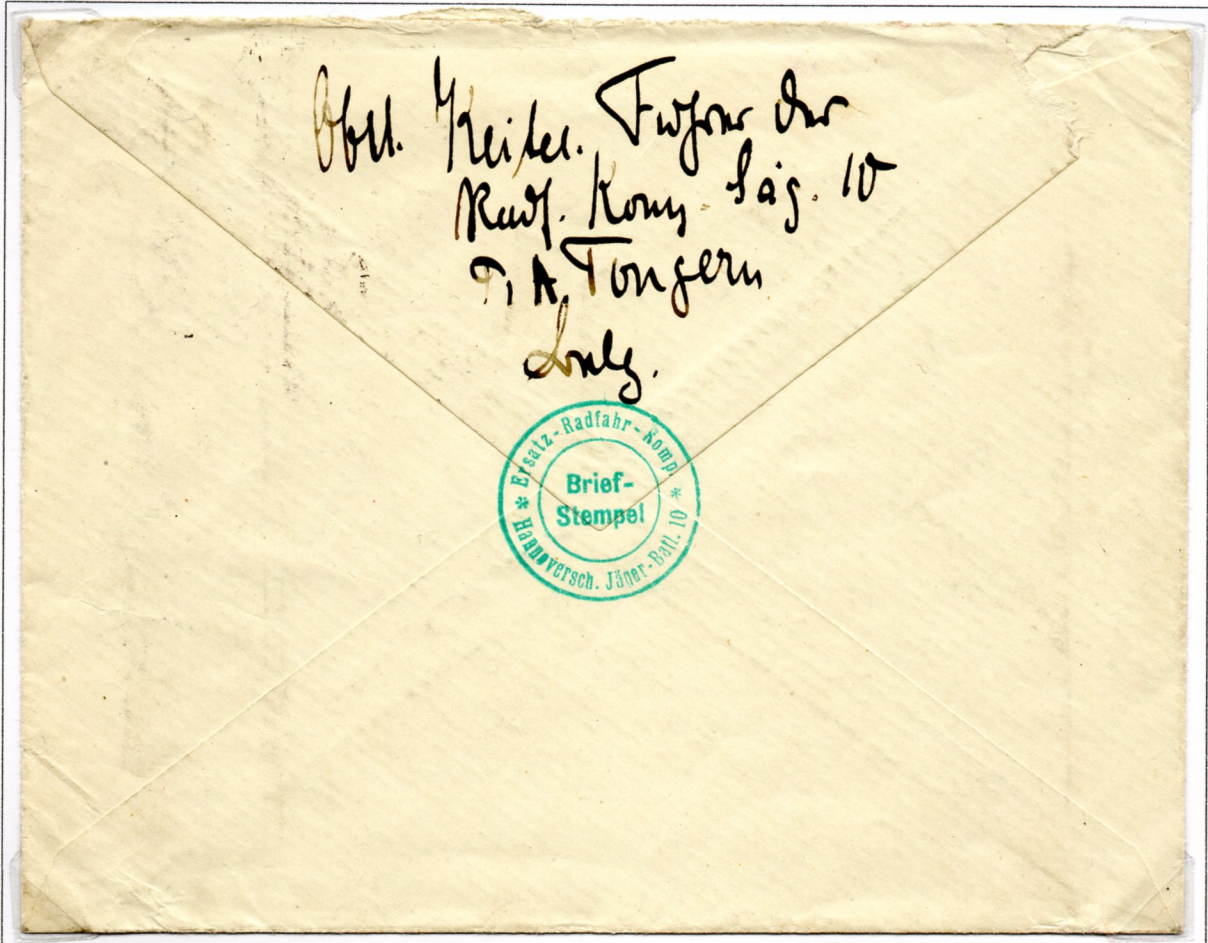 Obtl. Keitel. Führer der
Radf. Komp. Jäg. 10
P. A. Tongern
Ersatz-Radfahr-Komp.
Hannoversch. Jäger-Batl. 10
Brief-
Stempel